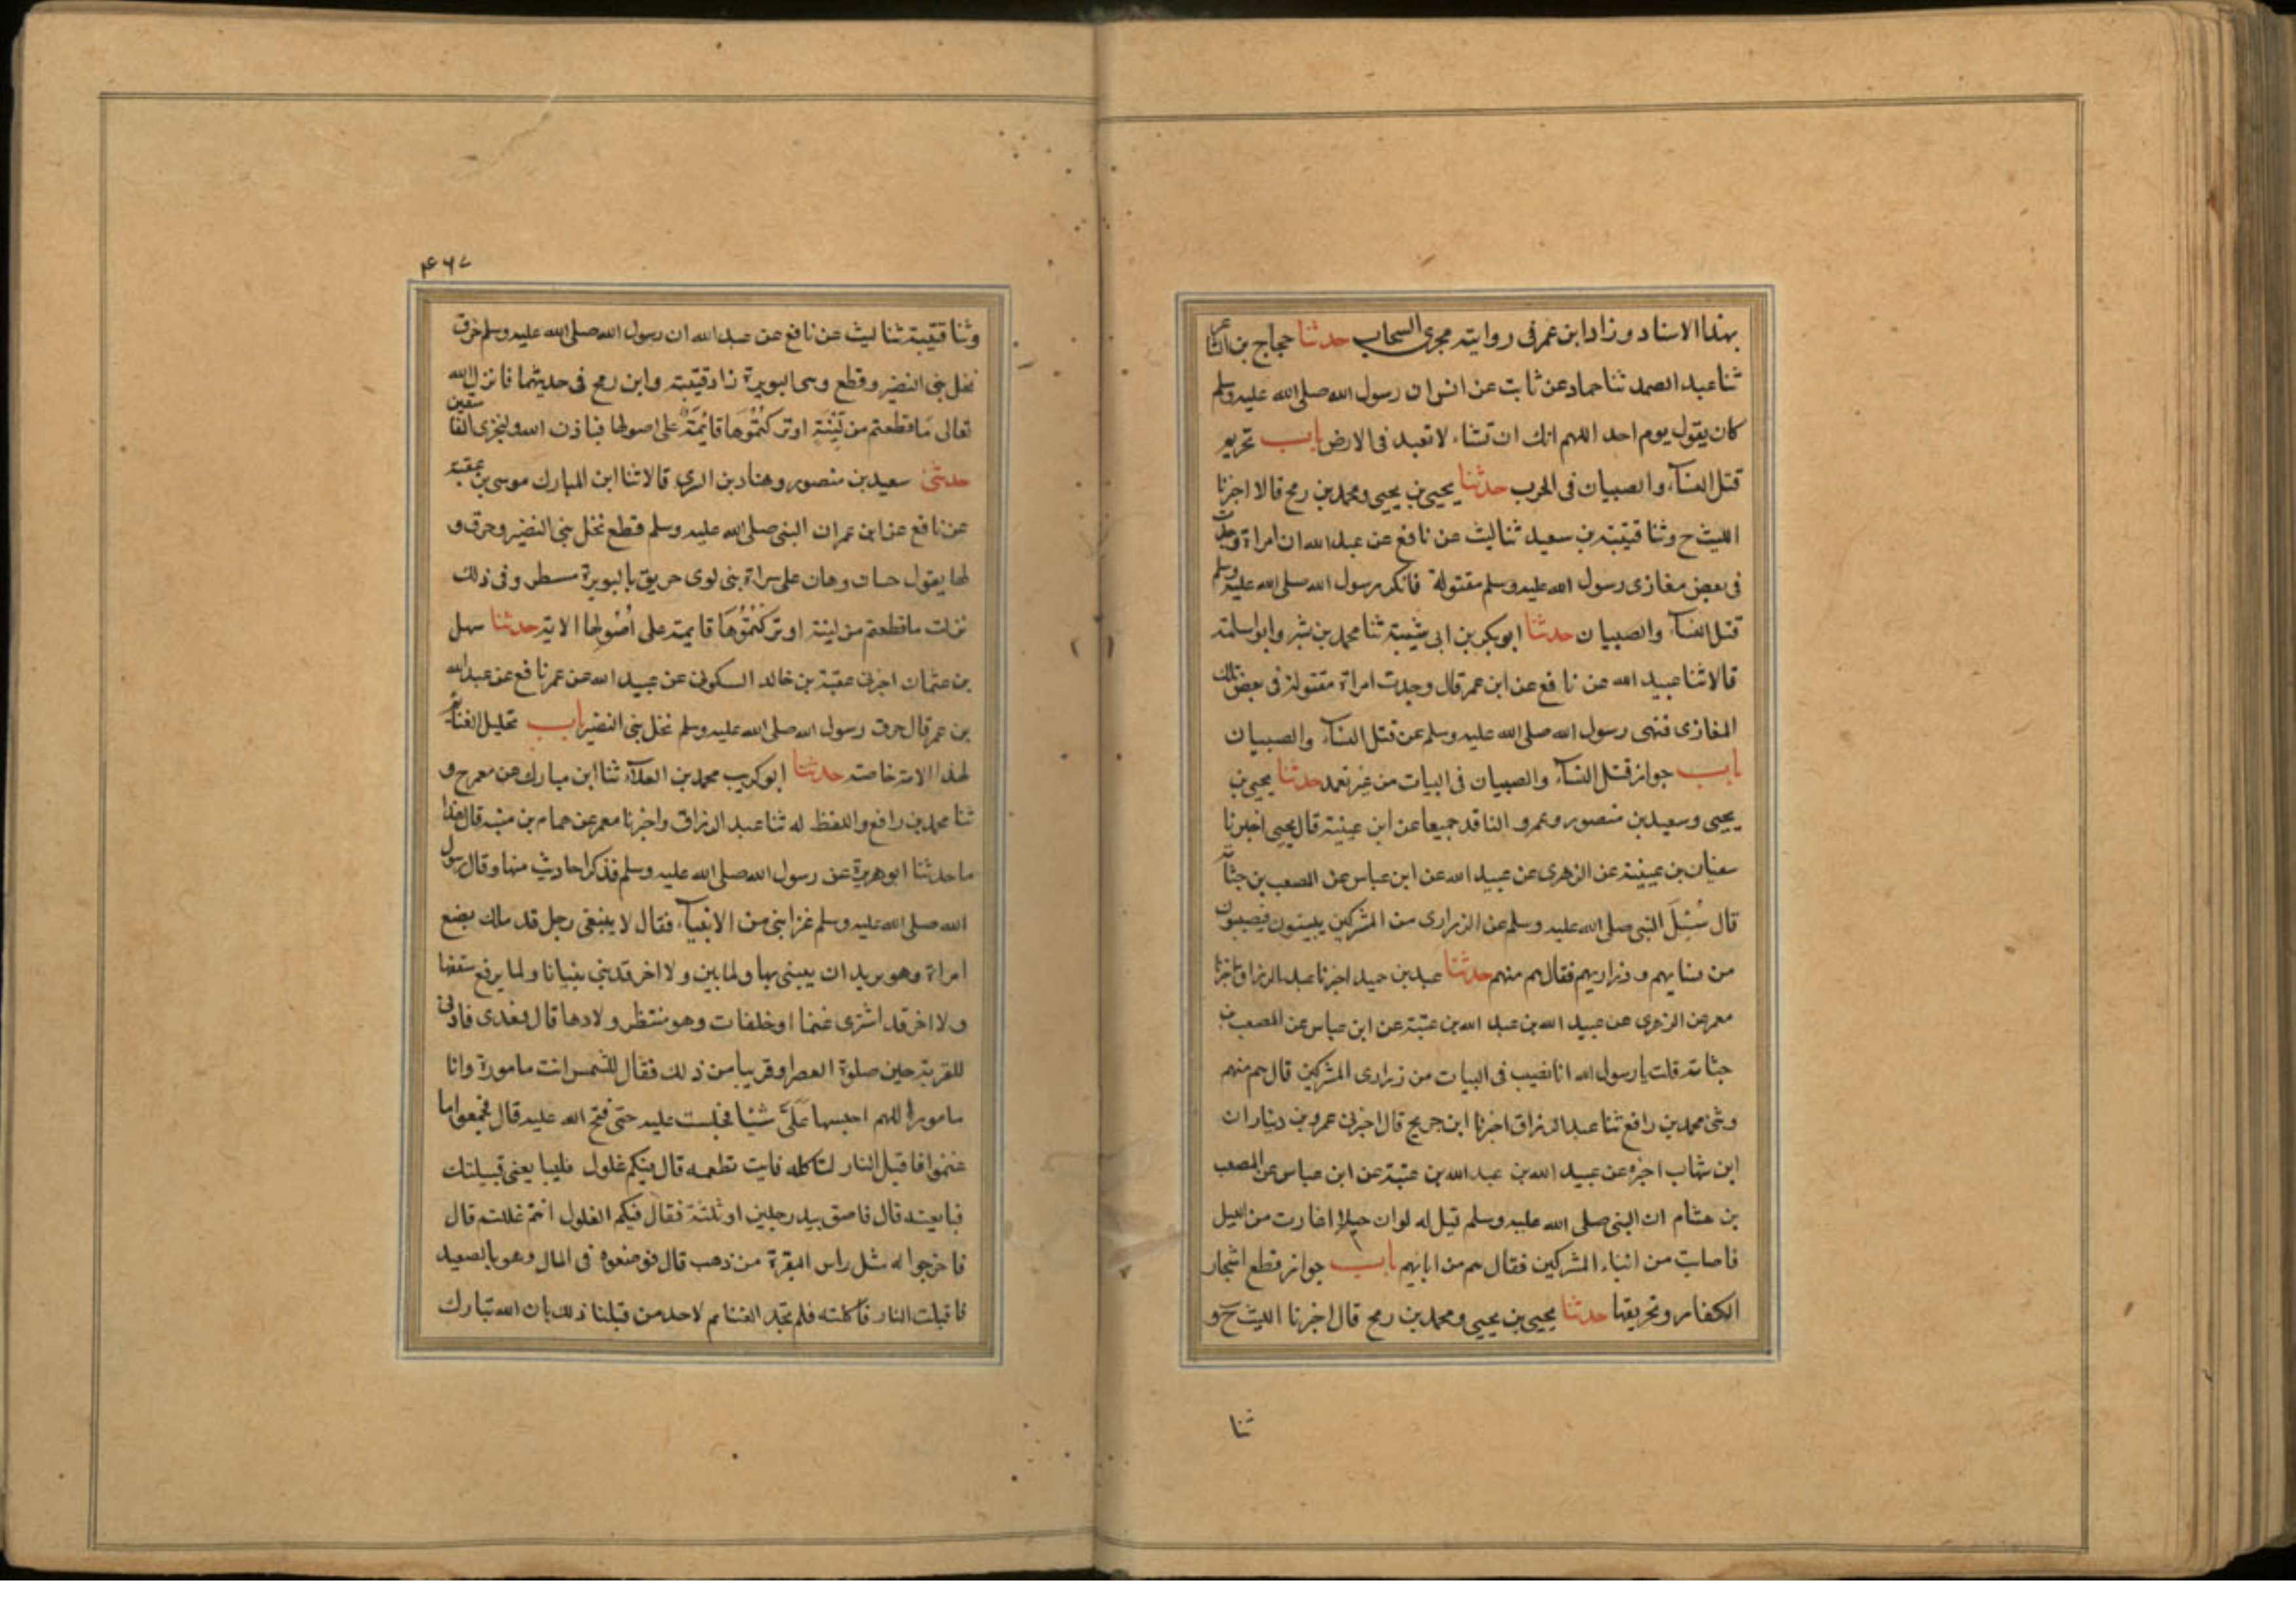 بهذا الاسناد وزاد ابن عمر فى روايته مجرى السحاب حدثنا حجاج بن الشاعر
ثنا عبد الصمد ثنا حماد عن ثابت عن انس ان رسول الله صلى الله عليه وسلم
كان يقول يوم احد اللهم انك ان تشاء لا تعبد فى الارض باب تحريم
قتل النسآء والصبيان فى الحرب حدثنا يحيى بن يحيى ومحمد بن رمح قالا اخبرنا
الليث ح وثنا قتيبة بن سعيد ثنا ليث عن نافع عن عبد الله ان امراة وجدت
فى بعض مغازى رسول الله عليه وسلم مقتولة فانكر رسول الله صلى الله عليه وسلم
قتل النسآء والصبيان حدثنا ابو بكر بن ابى شيبة ثنا محمد بن بشر وابو اسامة
قالا ثنا عبيد الله عن نافع عن ابن عمر قال وجدت امراة مقتولة فى بعض تلك
المغازى فنهى رسول الله صلى الله عليه وسلم عن قتل النسآء والصبيان
باب جواز قتل النسآء والصبيان فى البيات من غير تعمد حدثنا يحيى بن
يحيى وسعيد بن منصور وعمرو الناقد جميعا عن ابن عيينة قال يحيى اخبرنا
سفيان بن عيينة عن الزهرى عن عبيد الله عن ابن عباس عن الصعب بن جثامة
قال سُئِلَ النبى صلى الله عليه وسلم عن الذرارى من المشركين يبيتون فيصيبون
من نسايهم وذراريهم فقال هم منهم حدثنا عبد بن حميد اخبرنا عبد الرزاق اخبرنا
معمر عن الزهرى عن عبيد الله بن عبد الله بن عتبة عن ابن عباس عن الصعب بن
جثامة قلت يا رسول الله انا نصيب فى البيات من ذرارى المشركين قال هم منهم
وثنى محمد بن رافع ثنا عبد الرزاق اخبرنا ابن جريج قال اخبرنى عمرو بن دينار ان
ابن شهاب اخبره عن عبيد الله بن عبد الله بن عتبة عن ابن عباس عن الصعب
بن جثام ان النبى صلى الله عليه وسلم قيل له لو ان خيلا اغارت من الليل
فاصابت من ابناء المشركين فقال هم من ابائهم باب جواز قطع اشجار
الكفار وتحريقها حدثنا يحيى بن يحيى ومحمد بن رمح قال اخبرنا الليث ح و
ثنا
۴۶۷
وثنا قتيبة ثنا ليث عن نافع عن عبد الله ان رسول الله صلى الله عليه وسلم حرق
نخل بنى النضير وقطع وهى البويرة زاد قتيبة وابن رمح فى حديثهما فانزل الله
تعالى مَا قطعتم من لِّينَةٍ او تركْتُمُوهَا قَائِمَةً على اصولها فباذن الله وليخزى الفاسقين
حدثنى سعيد بن منصور وهناد بن السرى قالا ثنا ابن المبارك موسى بن عقبة
عن نافع عن ابن عمر ان النبى صلى الله عليه وسلم قطع نخل بنى النضير وحرق و
لها يقول حسان وهان على سراة بنى لوى حريق بالبويرة مستطير وفى ذلك
نزلت ما قطعتم من لينة او تركْتُمُوْهَا قايمة على اُصُولها الاية حدثنا سهل
بن عثمان اخبرنى عقبة بن خالد السكونى عن عبيد الله عن عمر نافع عن عبد الله
بن عمر قال حرق رسول الله صلى الله عليه وسلم نخل بنى النضير باب تحليل الغنائم
لهذا الامة خاصة حدثنا ابو كريب محمد بن العلآء ثنا ابن مبارك عن معمر ح و
ثنا محمد بن رافع واللفظ له ثنا عبد الرزاق واخبرنا معمر عن همام بن منبه قال هذا
ما حدثنا ابو هريرة عن رسول الله صلى الله عليه وسلم فذكر احاديث منها وقال رسول
الله صلى الله عليه وسلم غزا نبى من الانبيآء فقال لا يتبعنى رجل قد ملك بضع
امراة وهو يريد ان يبنى بها ولما يبن ولا اخر قد بنى بنيانا ولما يرفع سقفها
ولا اخر قد اشترى غنما او خلفات وهو منتظر ولادها قال فغدى فادنى
للقرية حين صلوة العصر او قريبا من ذلك فقال للشمس انت مامورة وانا
مامور اللهم احبسها عَلَىَّ شيئا فحبست عليه حتى فتح الله عليه قال فجمعوا ما
غنموا فاقبل النار لتاكله فابت تطعمه قال فيكم غلول فليبا يعنى قبيلتك
فبايعته قال فلصق بيد رجلين او ثلثة فقال فيكم الغلول انتم غللتم قال
فاخرجوا له مثل راس البقرة من ذهب قال فوضعوه فى المال وهو بالصعيد
فاقبلت النار فاكلته فلم تجد الغنايم لاحد من قبلنا ذلك بان الله تبارك